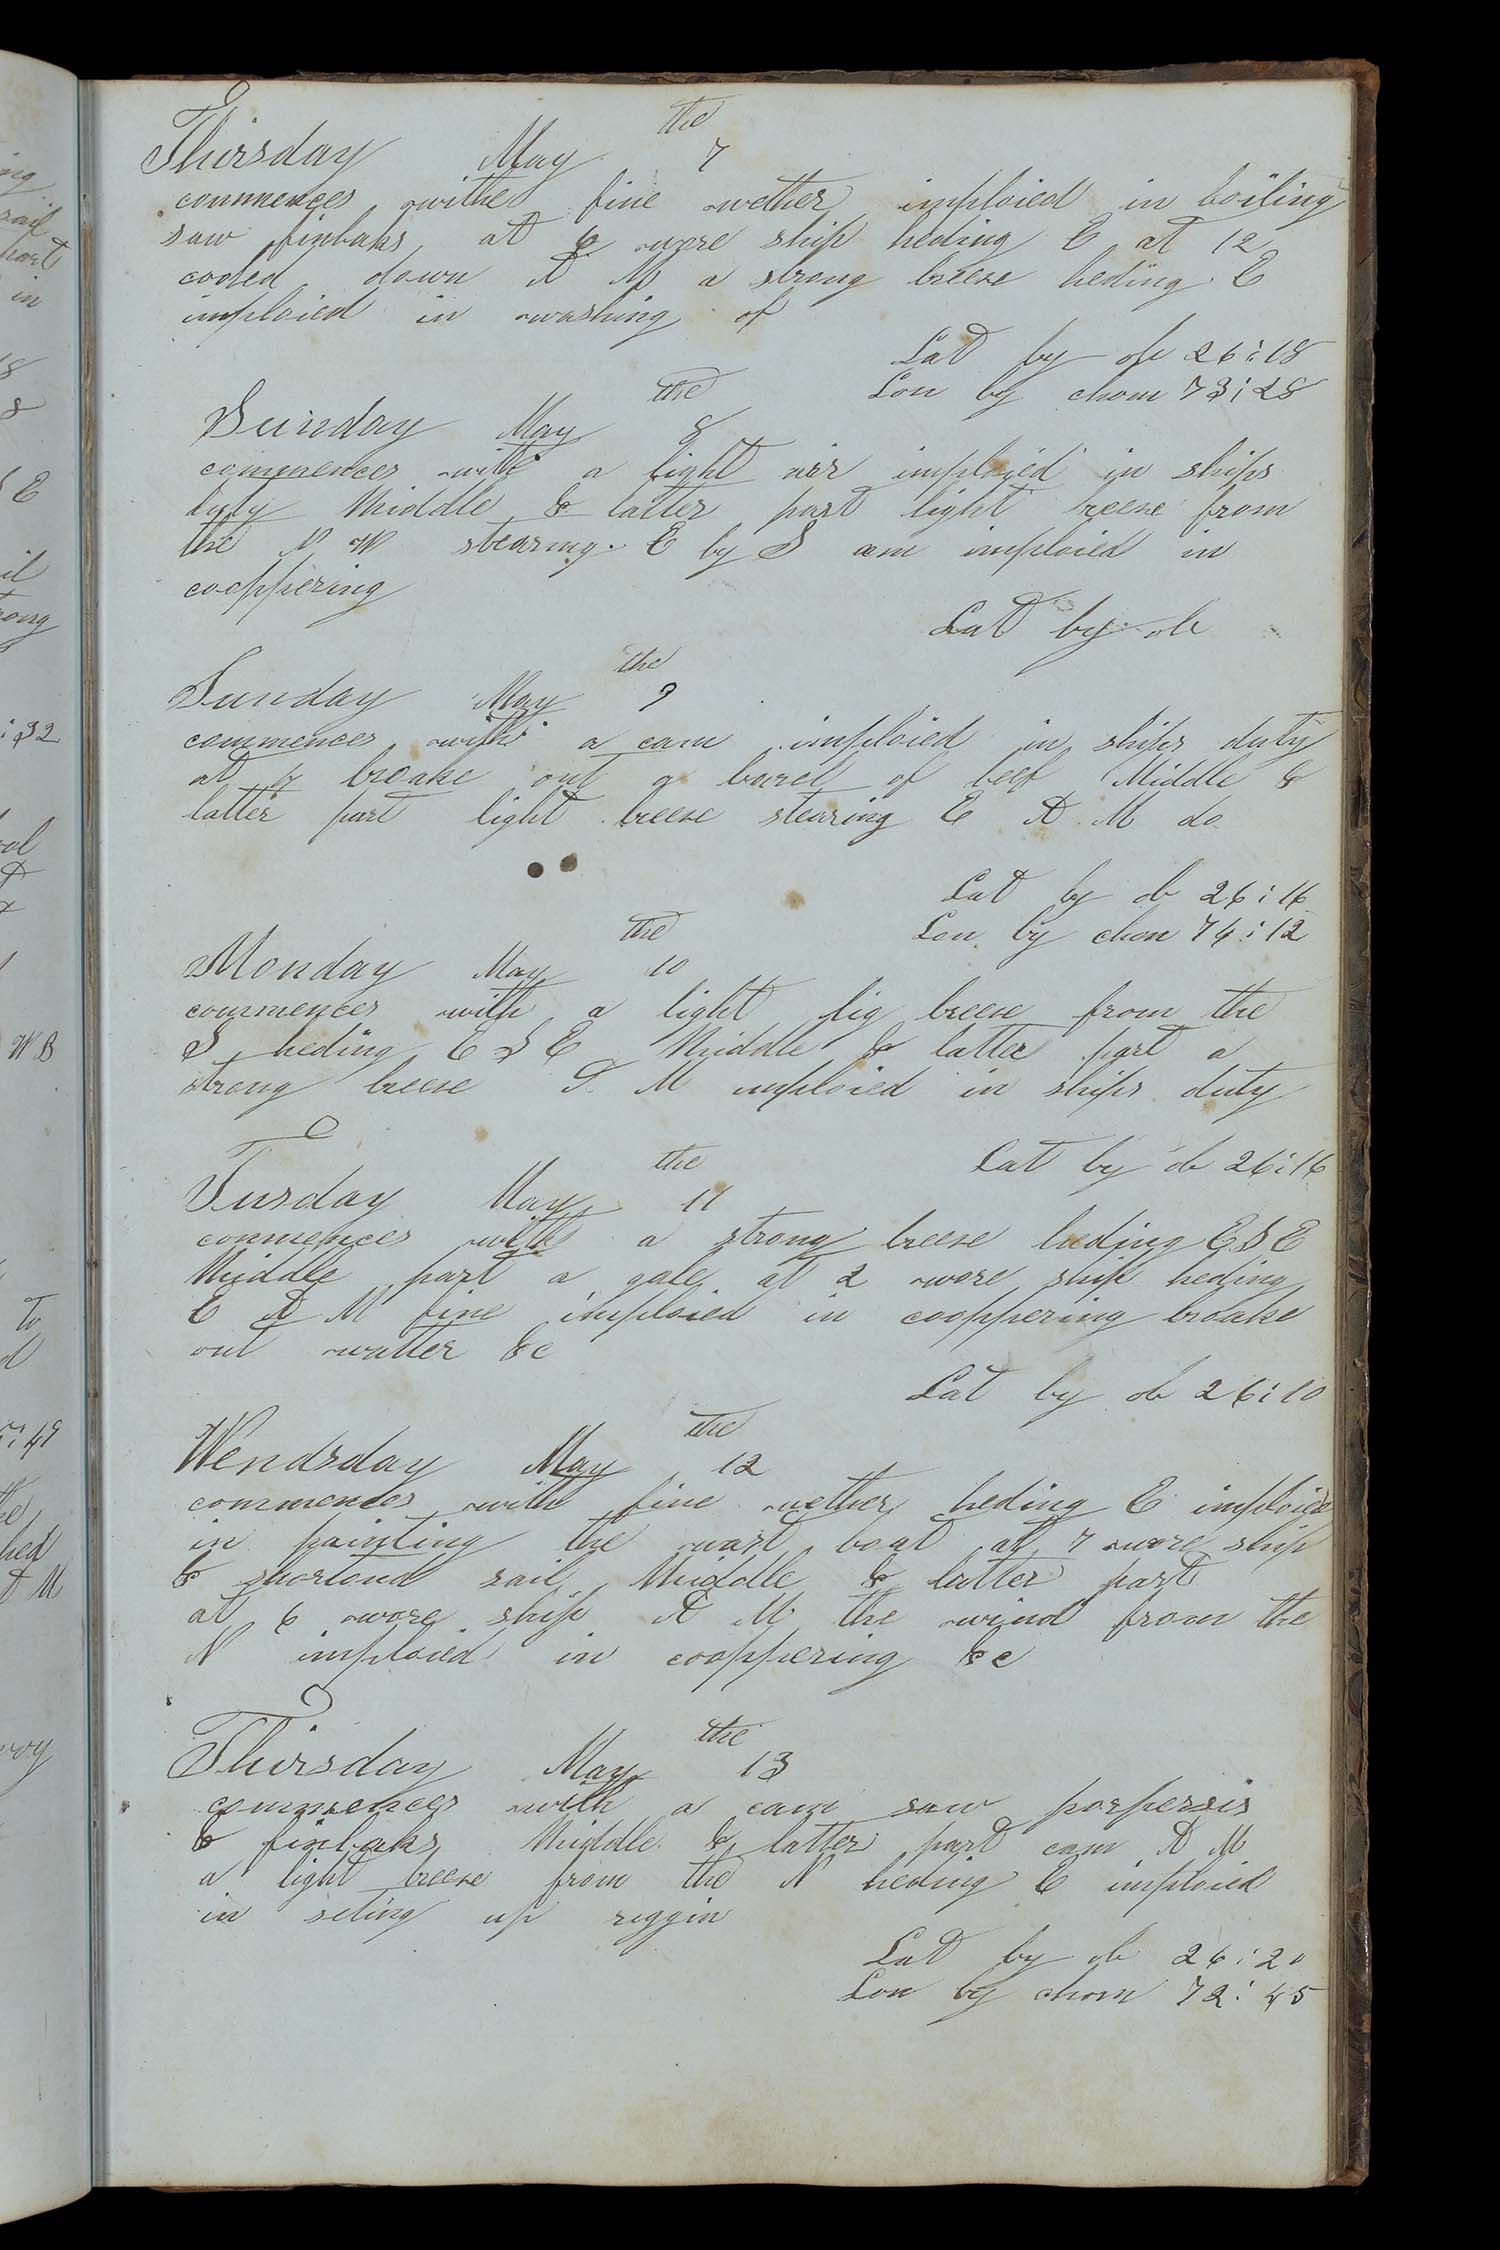 Thirsday May the 7
commences withe fine wether imploied in boiling
saw finbaks at 6 wore ship heding E at 12
cooled down A M a strong breese heding E
imploied in washing of
Lat by ob 26:18
Lon by chom 73:28
Sunday May the 8
commences with a light air imployed in ships
duty Middle & latter part light breese from
the N W stearing E by S am imploied in
cooppering
Lat by ob
Sunday May the 9
commences with a cam imploied in ships duty
at 7 broake out a barel of beef Middle &
latter part light breese stearing E A M do
Lat by ob 26:16
Lon by chon 74:12
Monday May the 10
commences with a light big breese from the
S heding E S E Middle & latter part a
strong breese P M imploied in ships duty
Lat by ob 26:16
Tusday May the 11
commences with a strong breese heding E S E
Middle part a gale at 2 wore ship heding
E A M fine imploied in cooppering broake
out watter &c
Lat by ob 26:10
Wendsday May the 12
commences with fine wether heding E imploied
in painting the wast boat at 7 wore ship
& shortond sail Middle & latter part
at 6 wore ship A M the wind from the
N imploied in cooppering &c
Thirsday May the 13
commences with a cam saw porpersis
& finbaks Middle & latter part cam A M
a light breese from the N heding E imploied
in seting up riggin
Lat by ob 26:20
Lon by chom 72:45
ing
rail
part
in
18
8
S E
il
rong
:32
W B
To
:49
the
hed
A M